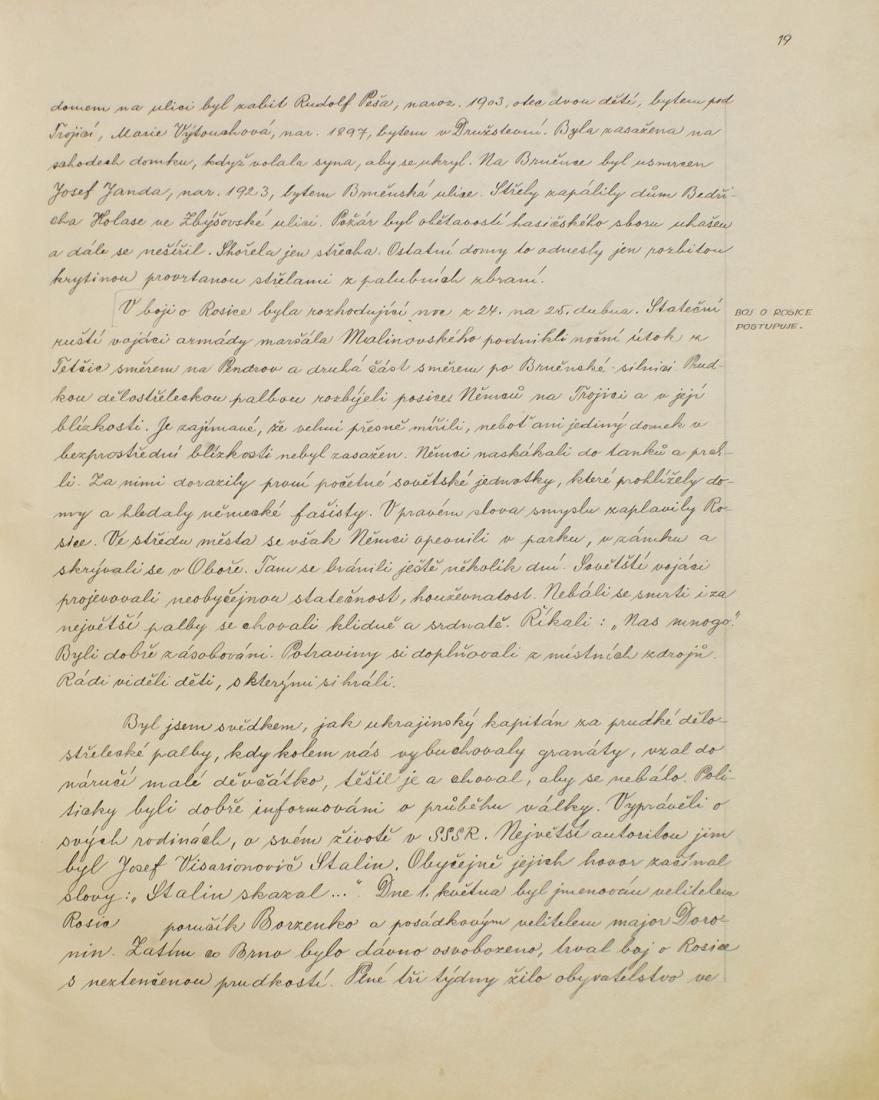 19
domem na ulici byl zabit Rudolf Peša, naroz. 1903, otec dvou dětí, bytem pod
Trojicí, Marie Výtouchová, nar. 1897, bytem v Družstevní. Byla zasažena na
schodech domku, když volala syna, aby se ukryl. Na Brněnce byl usmrcen
Josef Janda, nar. 1923, bytem Brněnská ulice. Střely zapálily dům Bedři-
cha Holase ve Zbýšovské ulici. Požár byl obětavostí hasičského sboru uhašen
a dále se nešířil. Shořela jen střecha. Ostatní domy to odnesly jen rozbitou
krytinou provrtanou střelami z palubních zbraní.
V boji o Rosice byla rozhodující noc z 24. na 25. dubna. Stateční
BOJ O ROSICE
POSTUPUJE.
ruští vojáci armády maršála Malinovského podnikli noční útok z
Tetčic směrem na Pendrov a druhá část směrem po Brněnské silnici. Prud-
kou dělostřeleckou palbou rozbíjeli posice Němců na Trojici a v její
blízkosti. Je zajímavé, že velmi přesně mířili, neboť ani jediný domek v
bezprostřední blízkosti nebyl zasažen. Němci naskákali do tanků a prch-
li. Za nimi dorazily první početné sovětské jednotky, které prohlížely do-
my a hledaly německé fašisty. V pravém slova smyslu zaplavily Ro-
sice. Ve středu města se však Němci opevnili v parku, v zámku a
skrývali se v Oboře. Tam se bránili ještě několik dní. Sovětští vojáci
projevovali neobyčejnou statečnost, houževnatost. Nebáli se smrti i za
největší palby se chovali klidně a srdnatě. Říkali : „Nas mnogo".
Byli dobře zásobováni. Potraviny si doplňovali z místních zdrojů.
Rádi viděli děti, s kterými si hráli.
Byl jsem svědkem, jak ukrajinský kapitán za prudké dělo-
střelecké palby, kdy kolem nás vybuchovaly granáty, vzal do
náručí malé děvčátko, těšil je a choval, aby se nebálo. Poli-
ticky byli dobře informováni o průběhu války. Vyprávěli o
svých rodinách, o svém životě v SSSR. Největší autoritou jim
byl Josef Visarionovič Stalin. Obyčejně jejich hovor začínal
slovy : „Stalin skazal ...". Dne 1. května byl jmenován velitelem
Rosic poručík Borzenko a posádkovým velitelem major Doro-
nin. Zatím co Brno bylo dávno osvobozeno, trval boj o Rosice
s neztenčenou prudkostí. Plné tři týdny žilo obyvatelstvo ve